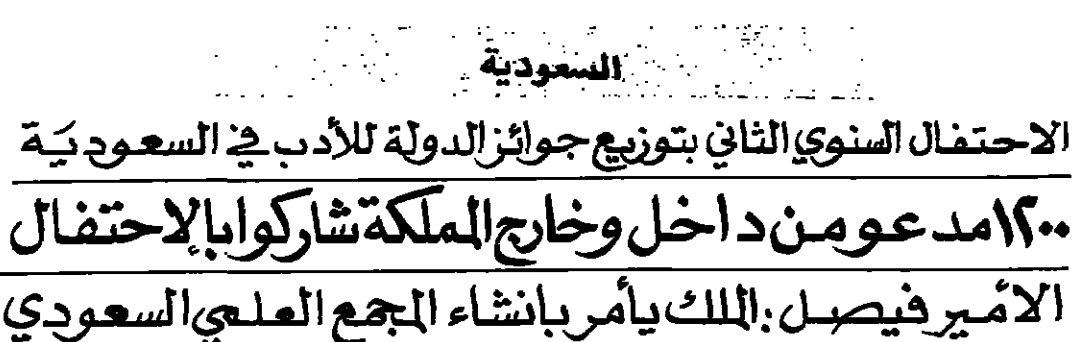 السعودية
الاحتفال السنوي الثاني بتوزيع جوائز الدولة للأدب في السعوديَة
١٢٠٠ مدعو من داخل وخارج المملكة شاركوا بالإحتفال
الامَير فيصل: الملك يأمر بانشاء المجمع العلمي السعودي